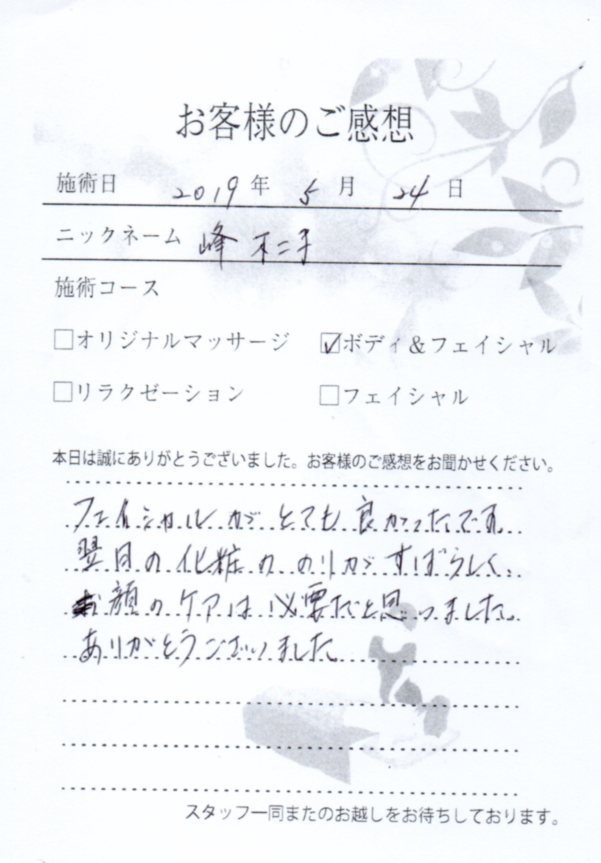 お客様のご感想
施術日 2019年 5月 24日
ニックネーム 峰 不二子
施術コース
□オリジナルマッサージ ☑ボディ＆フェイシャル
□リラクゼーション □フェイシャル
本日は誠にありがとうございました。お客様のご感想をお聞かせください。
フェイシャルがとても良かったです。
翌日の化粧ののりがすばらしく、
お顔のケアは必要だと思いました。
ありがとうございました
スタッフ一同またのお越しをお待ちしております。